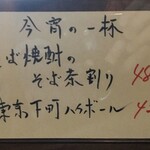 今宵の一杯
そば焼酎の
そば茶割り 48
東京下町ハイボール 4